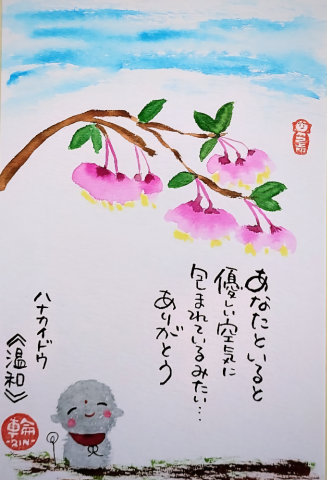 あなたといると
優しい空気に
包まれているみたい…
ありがとう
ハナカイドウ
《温和》
輪
-RIN-